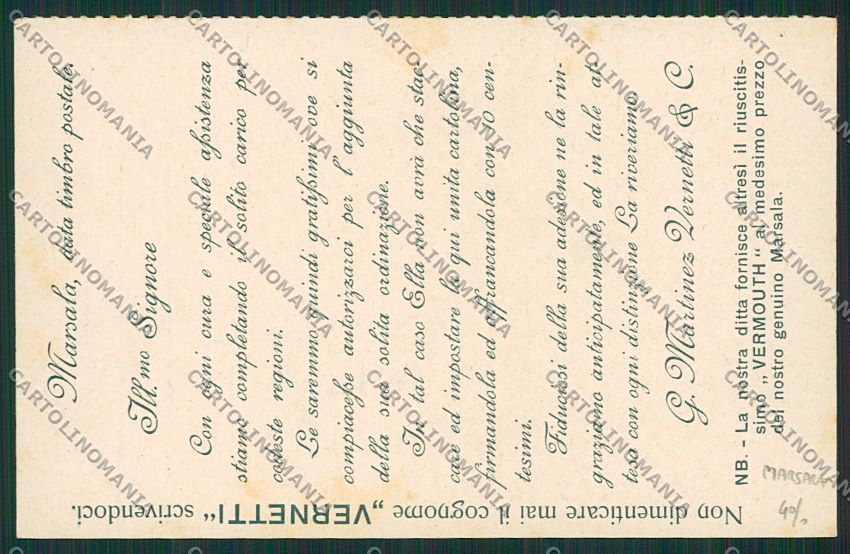 Marsala, data timbro postale.
Ill.mo Signore
Con ogni cura e speciale assistenza
stiamo completando il solito carico per
codeste regioni.
Le saremmo quindi gratissimi ove si
compiacesse autorizzarci per l'aggiunta
della sua solita ordinazione.
In tal caso Ella non avrà che stac-
care ed impostare la qui unita cartolina,
firmandola ed affrancandola con 10 cen-
tesimi.
Fiduciosi della sua adesione ne la rin-
graziamo anticipatamente, ed in tale at-
tesa con ogni distinzione La riveriamo.
G. Martinez Vernetti & C.
NB. - La nostra ditta fornisce altresì il riuscitis-
simo „VERMOUTH" al medesimo prezzo
del nostro genuino Marsala.
Non dimenticare mai il cognome „VERNETTI" scrivendoci.
MARSALA
40/.
CARTOLINOMANIA